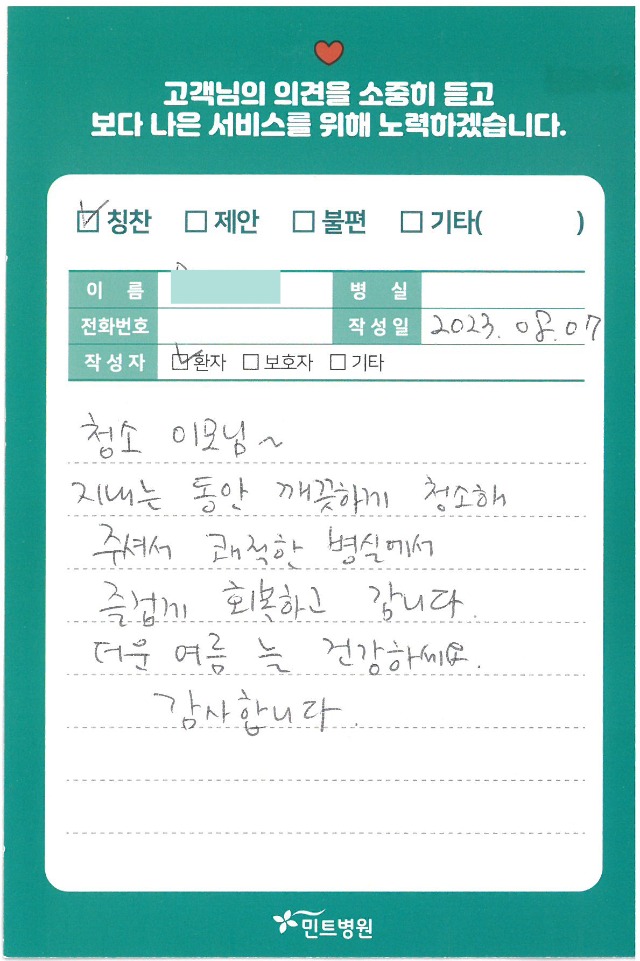 고객님의 의견을 소중히 듣고
보다 나은 서비스를 위해 노력하겠습니다.
칭찬 제안 불편 기타( )
이 름 병 실
전화번호 작성일 2023. 08. 07
작성자 환자 보호자 기타
청소 이모님~
지내는 동안 깨끗하게 청소해
주셔서 쾌적한 병실에서
즐겁게 회복하고 갑니다.
더운 여름 늘 건강하세요.
감사합니다.
민트병원